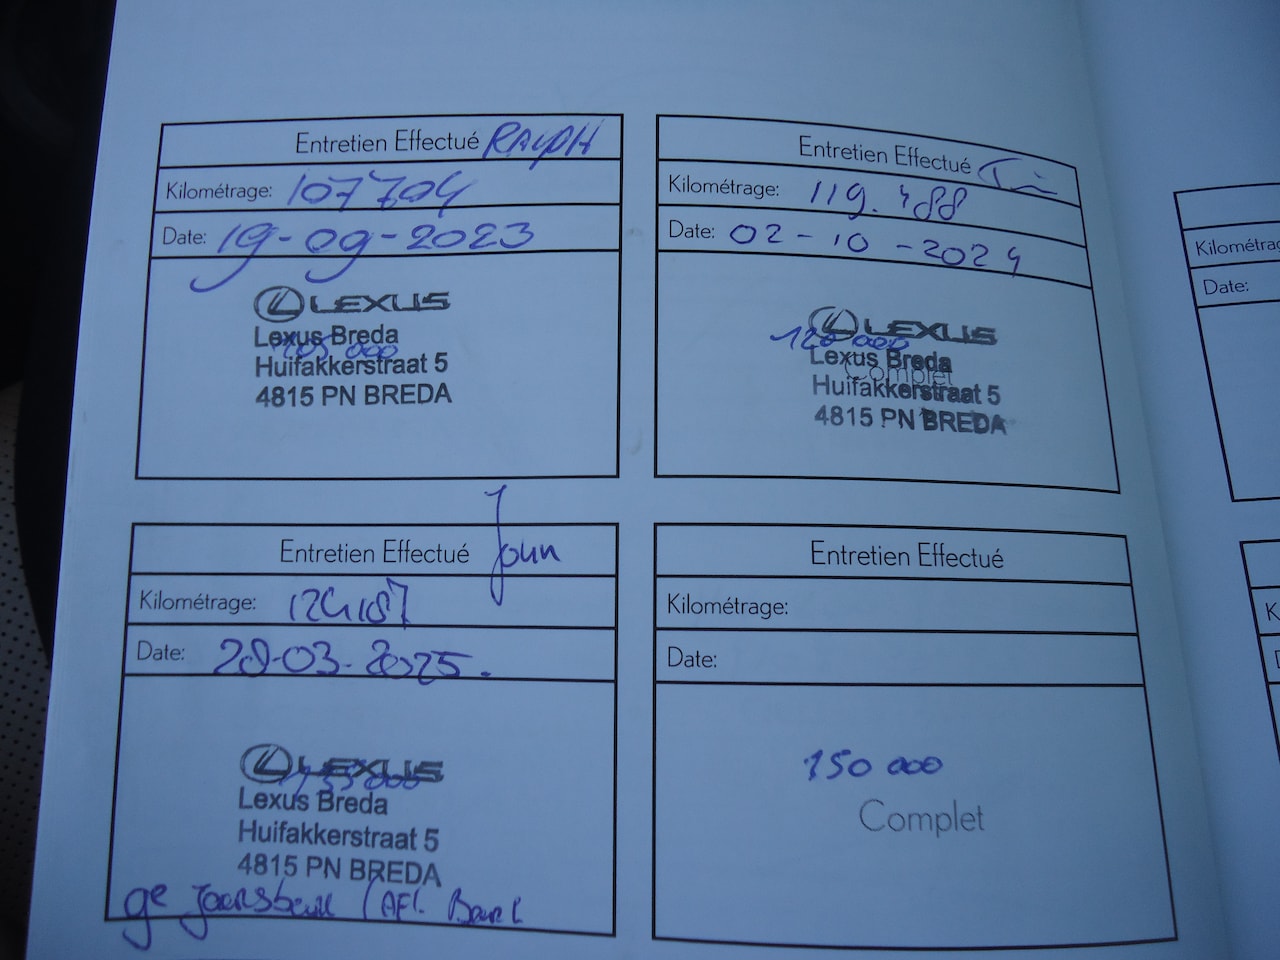 Entretien Effectué RALPH
Kilométrage: 107704
Date: 19-09-2023
LEXUS
Lexus Breda
105 000
Huifakkerstraat 5
4815 PN BREDA
Entretien Effectué
Kilométrage: 119.488
Date: 02-10-2024
LEXUS
120 000
Lexus Breda
Complet
Huifakkerstraat 5
4815 PN BREDA
Entretien Effectué John
Kilométrage: 124187
Date: 28-03-2025.
LEXUS
135 000
Lexus Breda
Huifakkerstraat 5
4815 PN BREDA
ge Jaarsbeurt / AFL. Beurt
Entretien Effectué
Kilométrage:
Date:
150 000
Complet
Kilométrag
Date:
K